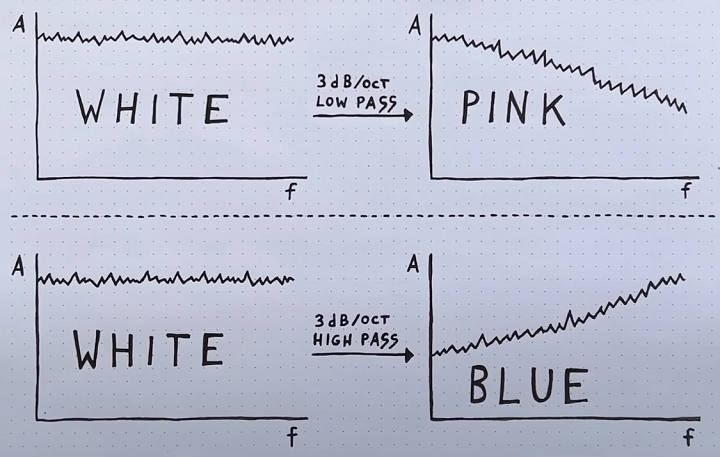 A
WHITE
f
3dB/OCT
LOW PASS
A
PINK
f
A
WHITE
f
3dB/OCT
HIGH PASS
A
BLUE
f